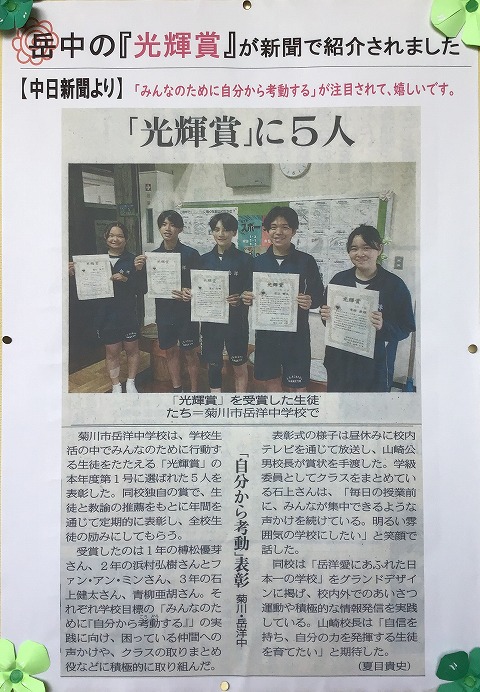 岳中の『光輝賞』が新聞で紹介されました
【中日新聞より】「みんなのために自分から考動する」が注目されて、嬉しいです。
「光輝賞」に5人
光輝賞
光輝賞
光輝賞
光輝賞
光輝賞
「光輝賞」を受賞した生徒
たち＝菊川市岳洋中学校で
菊川市岳洋中学校は、学校生
活の中でみんなのために行動す
る生徒をたたえる「光輝賞」の
本年度第1号に選ばれた5人を
表彰した。同校独自の賞で、生
徒と教諭の推薦をもとに年間を
通じて定期的に表彰し、全校生
徒の励みにしてもらう。
受賞したのは1年の榑松優芽
さん、2年の浜村弘樹さんとフ
ァン・アン・ミンさん、3年の石
上健太さん、青柳亜胡さん。そ
れぞれ学校目標の「みんなのた
めに『自分から考動する』」の実
践に向け、困っている仲間への
声かけや、クラスの取りまとめ
役などに積極的に取り組んだ。
「自分から考動」表彰
菊川・岳洋中
表彰式の様子は昼休みに校内
テレビを通じて放送し、山崎公
男校長が賞状を手渡した。学級
委員としてクラスをまとめてい
る石上さんは、「毎日の授業前
に、みんなが集中できるような
声かけを続けている。明るい雰
囲気の学校にしたい」と笑顔で
話した。
同校は「岳洋愛にあふれた日
本一の学校」をグランドデザイ
ンに掲げ、校内外でのあいさつ
運動や積極的な情報発信を実践
している。山崎校長は「自信を
持ち、自分の力を発揮する生徒
を育てたい」と期待した。
（夏目貴史）